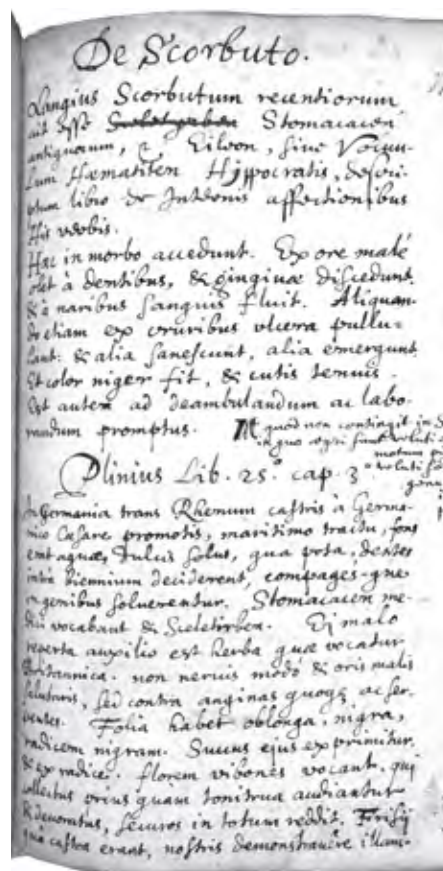 De Scorbuto.
Langius Scorbutum recentiorum
ait esse Stomacacen
antiquorum, & Eileon, sive Voluu-
lum Hæmatiten Hyppocratis, descri-
ptum libro de Internis affectionibus
His verbis.
Hæc in morbo accedunt. Ex ore malè
olet à dentibus, & gingivæ discedunt.
& è naribus sanguis fluit. Aliquan-
do etiam ex cruribus ulcera pullu-
lant: & alia sanescunt, alia emergunt.
Et color niger fit, & cutis tenuis.
Est autem ad deambulandum ac labo-
randum promptus. quod non contingit in
in quo ægri sunt
motum
Plinius Lib. 25.º cap. 3.º
In Germania trans Rhenum castris à Germa-
nico Cæsare promotis, maritimo tractu, fons
erat aquæ, dulcis solus, qua pota, dentes
intra biennium deciderent, compages-que
in genibus soluerentur. Stomacacen me-
dici vocabant & Sceletirben. Ei malo
reperta auxilio est herba quæ vocatur
Britannica. non neruis modò & oris malis
salutaris, sed contra anginas quoque ac ser-
pentes. Folia habet oblonga, nigra,
radicem nigram. Succus ejus exprimitur
& ex radice. florem vibones vocant. qui
collectus prius quam tonitrua audiantur
& devoratus, securos in totum reddit. Frisij
qua castra erant, nostris demonstravere illam.